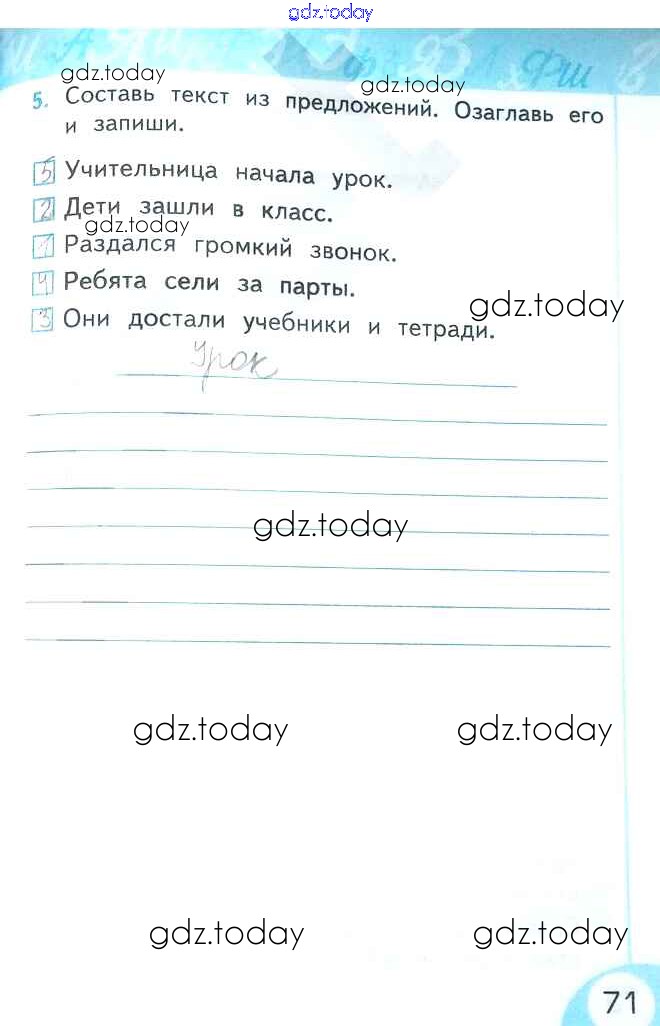 gdz.today
gdz.today
gdz.today
5. Составь текст из предложений. Озаглавь его
и запиши.
5 Учительница начала урок.
2 Дети зашли в класс.
gdz.today
1 Раздался громкий звонок.
4 Ребята сели за парты.
gdz.today
3 Они достали учебники и тетради.
Урок
gdz.today
gdz.today gdz.today
gdz.today gdz.today
71